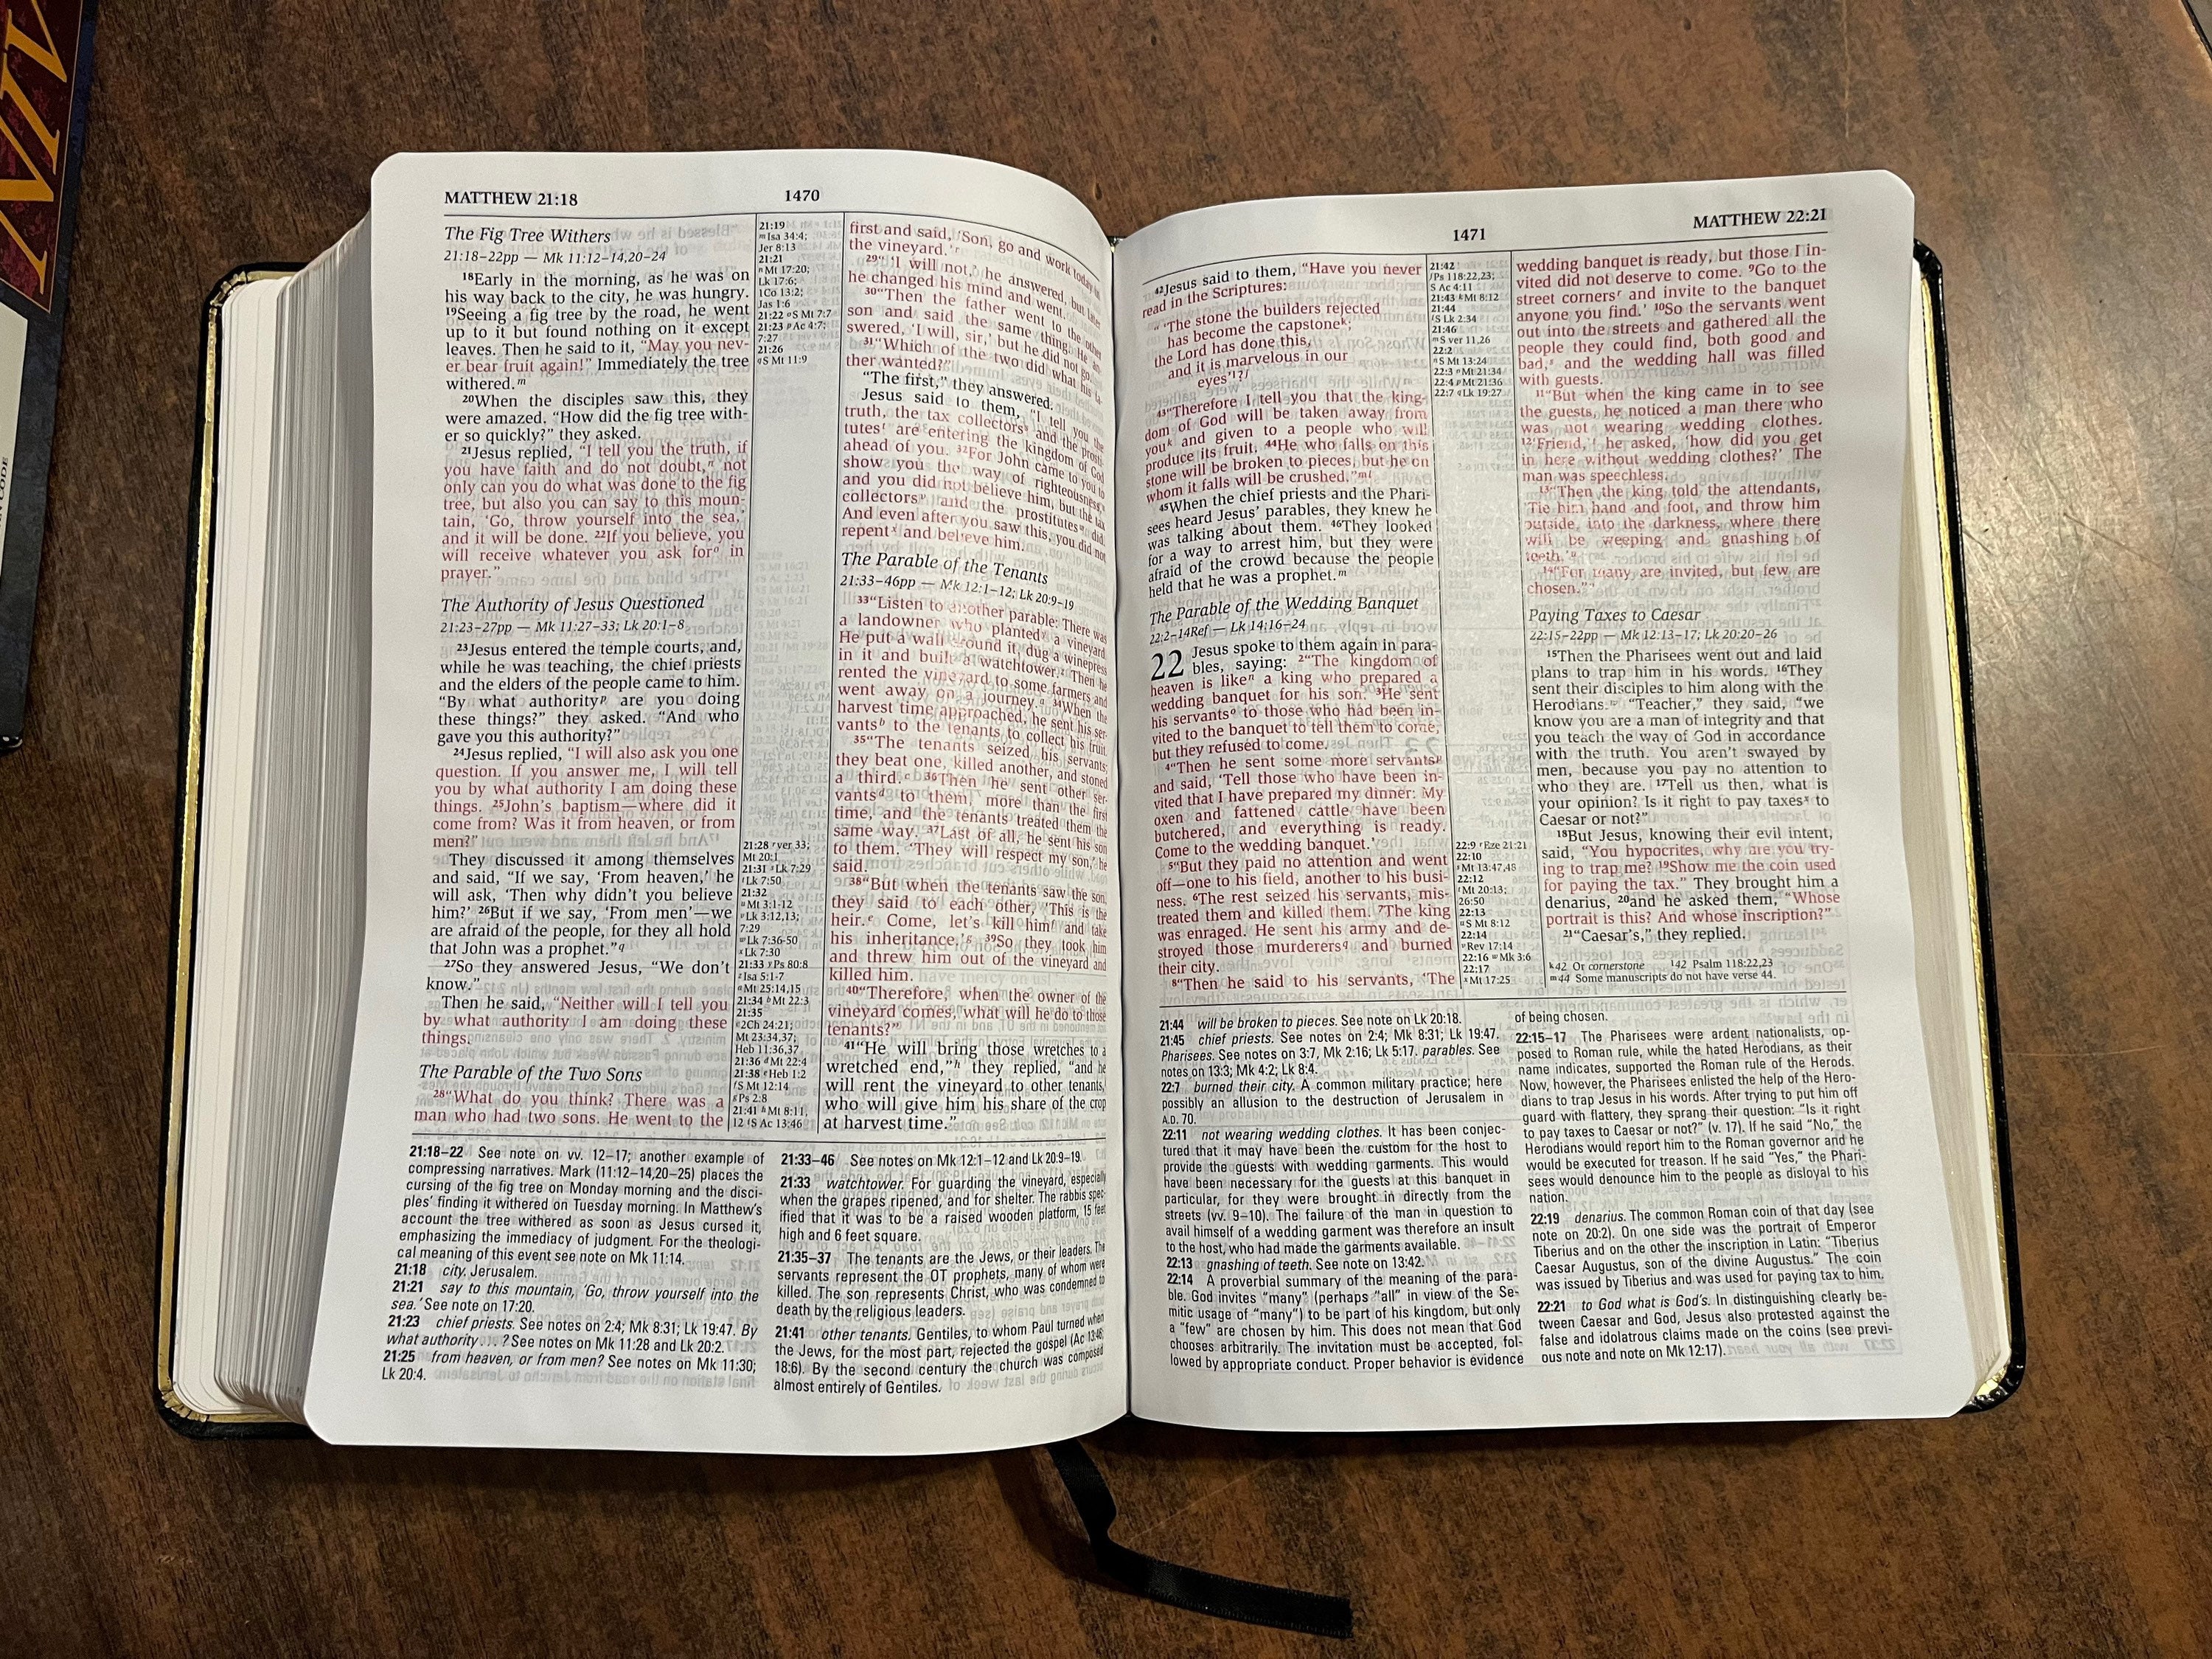 NIV
CODE
MATTHEW 21:18
1470
The Fig Tree Withers
21:18–22pp — Mk 11:12–14,20–24
18Early in the morning, as he was on
his way back to the city, he was hungry.
19Seeing a fig tree by the road, he went
up to it but found nothing on it except
leaves. Then he said to it, “May you nev-
er bear fruit again!” Immediately the tree
withered.m
20When the disciples saw this, they
were amazed. “How did the fig tree with-
er so quickly?” they asked.
21Jesus replied, “I tell you the truth, if
you have faith and do not doubt,n not
only can you do what was done to the fig
tree, but also you can say to this moun-
tain, ‘Go, throw yourself into the sea,’
and it will be done. 22If you believe, you
will receive whatever you ask foro in
prayer.”
The Authority of Jesus Questioned
21:23–27pp — Mk 11:27–33; Lk 20:1–8
23Jesus entered the temple courts, and,
while he was teaching, the chief priests
and the elders of the people came to him.
“By what authorityp are you doing
these things?” they asked. “And who
gave you this authority?”
24Jesus replied, “I will also ask you one
question. If you answer me, I will tell
you by what authority I am doing these
things. 25John’s baptism—where did it
come from? Was it from heaven, or from
men?”
They discussed it among themselves
and said, “If we say, ‘From heaven,’ he
will ask, ‘Then why didn’t you believe
him?’ 26But if we say, ‘From men’—we
are afraid of the people, for they all hold
that John was a prophet.”q
27So they answered Jesus, “We don’t
know.”
Then he said, “Neither will I tell you
by what authority I am doing these
things.
The Parable of the Two Sons
28“What do you think? There was a
man who had two sons. He went to the
21:19
m Isa 34:4;
Jer 8:13
21:21
n Mt 17:20;
Lk 17:6;
1Co 13:2;
Jas 1:6
21:22 o S Mt 7:7
21:23 p Ac 4:7;
7:27
21:26
q S Mt 11:9
21:28 r ver 33;
Mt 20:1
21:31 s Lk 7:29
t Lk 7:50
21:32
u Mt 3:1-12
v Lk 3:12,13;
7:29
w Lk 7:36-50
x Lk 7:30
21:33 y Ps 80:8
z Isa 5:1-7
a Mt 25:14,15
21:34 b Mt 22:3
21:35
c 2Ch 24:21;
Mt 23:34,37;
Heb 11:36,37
21:36 d Mt 22:4
21:38 e Heb 1:2
f S Mt 12:14
g Ps 2:8
21:41 h Mt 8:11,
12 i S Ac 13:46
first and said, ‘Son, go and work today in
the vineyard.’r
29“ ‘I will not,’ he answered, but later
he changed his mind and went.
30“Then the father went to the other
son and said the same thing. He an-
swered, ‘I will, sir,’ but he did not go.
31“Which of the two did what his fa-
ther wanted?”
“The first,” they answered.
Jesus said to them, “I tell you the
truth, the tax collectorss and the prosti-
tutest are entering the kingdom of God
ahead of you. 32For John came to you to
show you the way of righteousness,u
and you did not believe him, but the tax
collectorsv and the prostitutesw did.
And even after you saw this, you did not
repentx and believe him.
The Parable of the Tenants
21:33–46pp — Mk 12:1–12; Lk 20:9–19
33“Listen to another parable: There was
a landowner who plantedy a vineyard.
He put a wall around it, dug a winepress
in it and built a watchtower.z Then he
rented the vineyard to some farmers and
went away on a journey.a 34When the
harvest time approached, he sent his ser-
vantsb to the tenants to collect his fruit.
35“The tenants seized his servants;
they beat one, killed another, and stoned
a third.c 36Then he sent other ser-
vantsd to them, more than the first
time, and the tenants treated them the
same way. 37Last of all, he sent his son
to them. ‘They will respect my son,’ he
said.
38“But when the tenants saw the son,
they said to each other, ‘This is the
heir.e Come, let’s kill himf and take
his inheritance.’g 39So they took him
and threw him out of the vineyard and
killed him.
40“Therefore, when the owner of the
vineyard comes, what will he do to those
tenants?”
41“He will bring those wretches to a
wretched end,”h they replied, “and he
will rent the vineyard to other tenants,i
who will give him his share of the crop
at harvest time.”
21:18–22 See note on vv. 12–17; another example of
compressing narratives. Mark (11:12–14,20–25) places the
cursing of the fig tree on Monday morning and the disci-
ples’ finding it withered on Tuesday morning. In Matthew’s
account the tree withered as soon as Jesus cursed it,
emphasizing the immediacy of judgment. For the theologi-
cal meaning of this event see note on Mk 11:14.
21:18 city. Jerusalem.
21:21 say to this mountain, ‘Go, throw yourself into the
sea.’ See note on 17:20.
21:23 chief priests. See notes on 2:4; Mk 8:31; Lk 19:47. By
what authority . . . ? See notes on Mk 11:28 and Lk 20:2.
21:25 from heaven, or from men? See notes on Mk 11:30;
Lk 20:4.
21:33–46 See notes on Mk 12:1–12 and Lk 20:9–19.
21:33 watchtower. For guarding the vineyard, especially
when the grapes ripened, and for shelter. The rabbis spec-
ified that it was to be a raised wooden platform, 15 feet
high and 6 feet square.
21:35–37 The tenants are the Jews, or their leaders. The
servants represent the OT prophets, many of whom were
killed. The son represents Christ, who was condemned to
death by the religious leaders.
21:41 other tenants. Gentiles, to whom Paul turned when
the Jews, for the most part, rejected the gospel (Ac 13:46;
18:6). By the second century the church was composed
almost entirely of Gentiles.
1471
MATTHEW 22:21
42Jesus said to them, “Have you never
read in the Scriptures:
“ ‘The stone the builders rejected
has become the capstonek;
the Lord has done this,
and it is marvelous in our
eyes’l?j
43“Therefore I tell you that the king-
dom of God will be taken away from
youk and given to a people who will
produce its fruit. 44He who falls on this
stone will be broken to pieces, but he on
whom it falls will be crushed.”ml
45When the chief priests and the Phari-
sees heard Jesus’ parables, they knew he
was talking about them. 46They looked
for a way to arrest him, but they were
afraid of the crowd because the people
held that he was a prophet.m
The Parable of the Wedding Banquet
22:2–14Ref — Lk 14:16–24
22 Jesus spoke to them again in para-
bles, saying: 2“The kingdom of
heaven is liken a king who prepared a
wedding banquet for his son. 3He sent
his servantso to those who had been in-
vited to the banquet to tell them to come,
but they refused to come.
4“Then he sent some more servantsp
and said, ‘Tell those who have been in-
vited that I have prepared my dinner: My
oxen and fattened cattle have been
butchered, and everything is ready.
Come to the wedding banquet.’
5“But they paid no attention and went
off—one to his field, another to his busi-
ness. 6The rest seized his servants, mis-
treated them and killed them. 7The king
was enraged. He sent his army and de-
stroyed those murderersq and burned
their city.
8“Then he said to his servants, ‘The
21:42
j Ps 118:22,23;
S Ac 4:11
21:43 k Mt 8:12
21:44
l S Lk 2:34
21:46
m S ver 11,26
22:2
n S Mt 13:24
22:3 o Mt 21:34
22:4 p Mt 21:36
22:7 q Lk 19:27
22:9 r Eze 21:21
22:10
s Mt 13:47,48
22:12
t Mt 20:13;
26:50
22:13
u S Mt 8:12
22:14
v Rev 17:14
22:16 w Mk 3:6
22:17
x Mt 17:25
wedding banquet is ready, but those I in-
vited did not deserve to come. 9Go to the
street cornersr and invite to the banquet
anyone you find.’ 10So the servants went
out into the streets and gathered all the
people they could find, both good and
bad,s and the wedding hall was filled
with guests.
11“But when the king came in to see
the guests, he noticed a man there who
was not wearing wedding clothes.
12‘Friend,’t he asked, ‘how did you get
in here without wedding clothes?’ The
man was speechless.
13“Then the king told the attendants,
‘Tie him hand and foot, and throw him
outside, into the darkness, where there
will be weeping and gnashing of
teeth.’u
14“For many are invited, but few are
chosen.”v
Paying Taxes to Caesar
22:15–22pp — Mk 12:13–17; Lk 20:20–26
15Then the Pharisees went out and laid
plans to trap him in his words. 16They
sent their disciples to him along with the
Herodians.w “Teacher,” they said, “we
know you are a man of integrity and that
you teach the way of God in accordance
with the truth. You aren’t swayed by
men, because you pay no attention to
who they are. 17Tell us then, what is
your opinion? Is it right to pay taxesx to
Caesar or not?”
18But Jesus, knowing their evil intent,
said, “You hypocrites, why are you try-
ing to trap me? 19Show me the coin used
for paying the tax.” They brought him a
denarius, 20and he asked them, “Whose
portrait is this? And whose inscription?”
21“Caesar’s,” they replied.
k42 Or cornerstone l42 Psalm 118:22,23
m44 Some manuscripts do not have verse 44.
21:44 will be broken to pieces. See note on Lk 20:18.
21:45 chief priests. See notes on 2:4; Mk 8:31; Lk 19:47.
Pharisees. See notes on 3:7, Mk 2:16; Lk 5:17. parables. See
notes on 13:3; Mk 4:2; Lk 8:4.
22:7 burned their city. A common military practice; here
possibly an allusion to the destruction of Jerusalem in
A.D. 70.
22:11 not wearing wedding clothes. It has been conjec-
tured that it may have been the custom for the host to
provide the guests with wedding garments. This would
have been necessary for the guests at this banquet in
particular, for they were brought in directly from the
streets (vv. 9–10). The failure of the man in question to
avail himself of a wedding garment was therefore an insult
to the host, who had made the garments available.
22:13 gnashing of teeth. See note on 13:42.
22:14 A proverbial summary of the meaning of the para-
ble. God invites “many” (perhaps “all” in view of the Se-
mitic usage of “many”) to be part of his kingdom, but only
a “few” are chosen by him. This does not mean that God
chooses arbitrarily. The invitation must be accepted, fol-
lowed by appropriate conduct. Proper behavior is evidence
of being chosen.
22:15–17 The Pharisees were ardent nationalists, op-
posed to Roman rule, while the hated Herodians, as their
name indicates, supported the Roman rule of the Herods.
Now, however, the Pharisees enlisted the help of the Hero-
dians to trap Jesus in his words. After trying to put him off
guard with flattery, they sprang their question: “Is it right
to pay taxes to Caesar or not?” (v. 17). If he said “No,” the
Herodians would report him to the Roman governor and he
would be executed for treason. If he said “Yes,” the Phari-
sees would denounce him to the people as disloyal to his
nation.
22:19 denarius. The common Roman coin of that day (see
note on 20:2). On one side was the portrait of Emperor
Tiberius and on the other the inscription in Latin: “Tiberius
Caesar Augustus, son of the divine Augustus.” The coin
was issued by Tiberius and was used for paying tax to him.
22:21 to God what is God’s. In distinguishing clearly be-
tween Caesar and God, Jesus also protested against the
false and idolatrous claims made on the coins (see previ-
ous note and note on Mk 12:17).